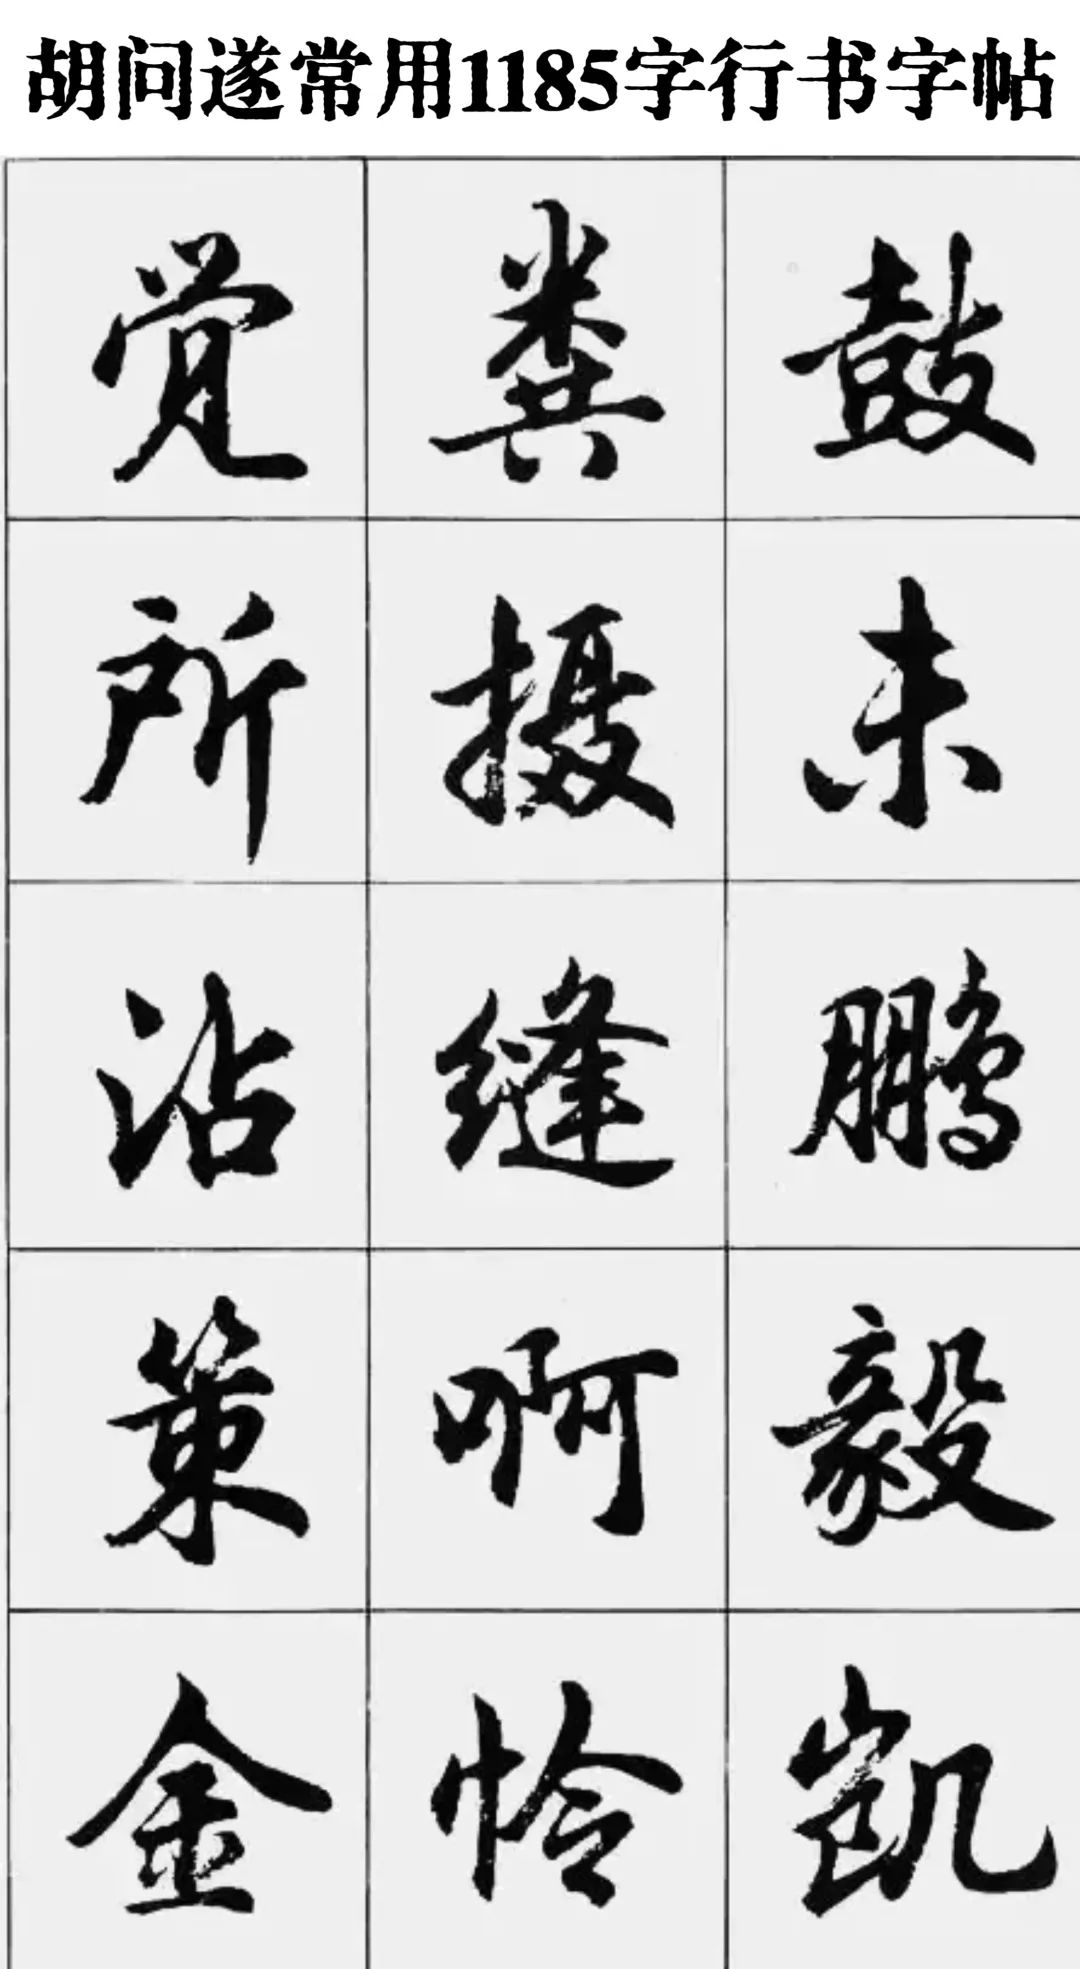 胡问遂常用1185字行书字帖
觉粪鼓
所摄未
沾缝鹏
策啊毅
金怜凯